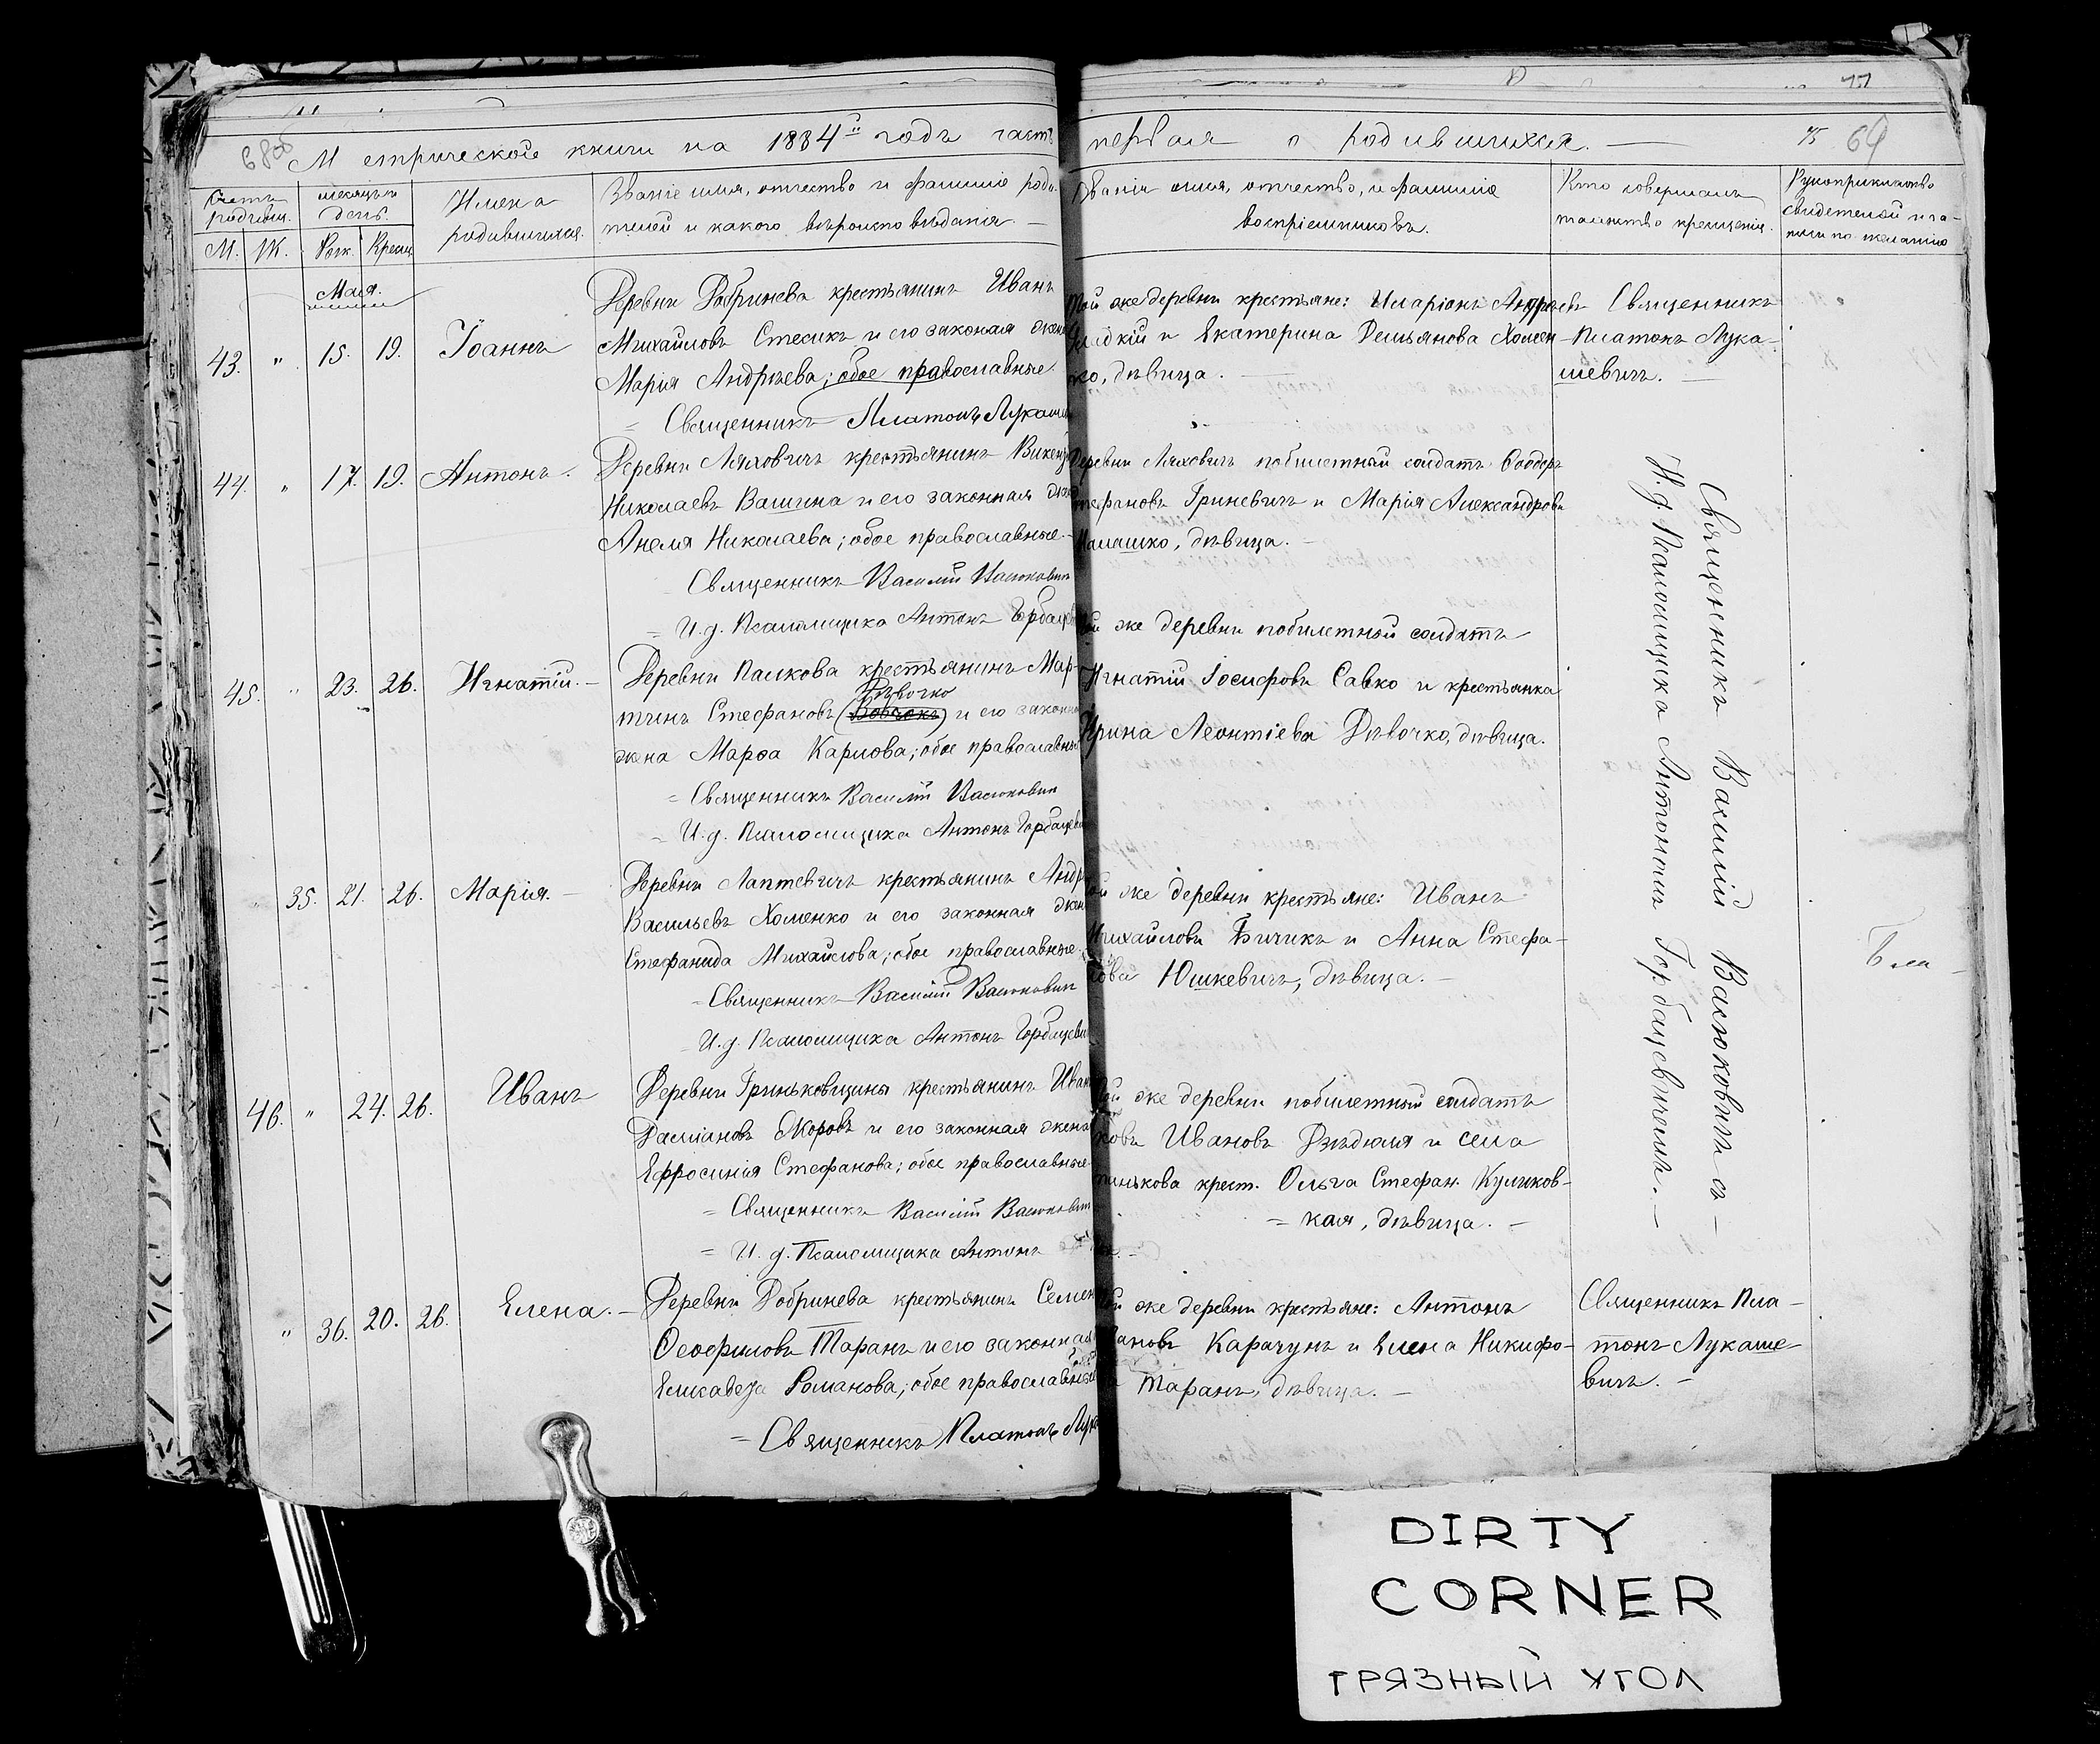 Метрической книги на 1884й годъ часть первая о родившихся.
75 69
77
Счетъ родивш.
М. Ж.
Месяцъ и день.
Рож. Крещ.
Имена родившихся.
Званіе имя, отчество и фамилія роди-
телей и какого вѣроисповѣданія
Званіе имя, отчество, и фамилія
воспріемниковъ.
Кто совершалъ
таинство крещенія.
Рукоприкладство
свидетелей и за-
писи по желанію
Мая.
43. " 15. 19. Іоаннъ
Деревни Добринева крестьянинъ Иванъ
Михайловъ Стесикъ и его законая жена
Марія Андреева; обое православные.
= Священникъ Платонъ Лукаше
Той же деревни крестьяне: Иларіонъ Андреевъ
и Екатерина Демьянова Хомен-
ко, дѣвица.
Священникъ
Платонъ Лука-
шевичъ.
44. " 17. 19. Антонъ.
Деревни Ляховичъ крестьянинъ Викен
Николаевъ Вашина и его законная жена
Анеля Николаева; обое православные.
Священникъ Василій Васюковичъ
= И.д. Псаломщика Антонъ Горбацев
Деревни Ляховичъ побилетный солдатъ Ѳеодоръ
Стефановъ Гриневичъ и Марія Александрова
Малашко, дѣвица.
45. " 23. 26. Игнатій.
Деревни Палкова крестьянинъ Мар-
Дѣвочко
тинъ Стефановъ и его законна
жена Марѳа Карлова; обое православные
= Священникъ Василій Васюковичъ
= И.д. Псаломщика Антонъ Горбацеви
Той же деревни побилетный солдатъ
Игнатій Іосифовъ Савко и крестьянка
Ирина Леонтіева Дѣвочко, дѣвица.
35. 21. 26. Марія.
Деревни Лаптевичъ крестьянинъ Андр
Васильевъ Хоменко и его законная жен
Стефанида Михайлова; обое православные.
= Священникъ Василій Васюковичъ
= И.д. Псаломщика Антонъ Горбацеви
Той же деревни крестьяне: Иванъ
Михайловъ Бичикъ и Анна Стефа-
нова Юшкевичъ, дѣвица.
46. " 24. 26. Иванъ
Деревни Гриньковщины крестьянинъ Иван
Даміановъ и его законная жена
Ефросинія Стефанова; обое православные
= Священникъ Василій Васюковичъ
= И.д. Псаломщика Антонъ
Той же деревни побилетный солдатъ
Ивановъ и села
крест. Ольга Стефан. Куликов-
= кая, дѣвица.
Священникъ Василій Васюковичъ съ
И.д. Псаломщика Антономъ Горбацевичемъ.
" 36. 20. 26. Елена.
Деревни Добринева крестьянинъ Семен
Ѳеофиловъ Таранъ и его законная
Елисавета Романова; обое православные
= Священникъ Платонъ Лука
Той же деревни крестьяне: Антонъ
Ивановъ Карачунъ и Елена Никифо-
Таранъ, дѣвица.
Священникъ Пла-
тонъ Лукаше-
вичъ.
DIRTY
CORNER
ГРЯЗНЫЙ УГОЛ